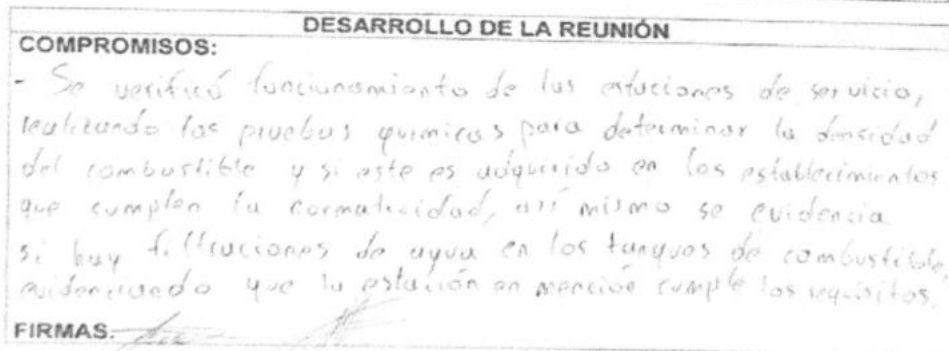 DESARROLLO DE LA REUNIÓN
COMPROMISOS:
- Se verificó funcionamiento de las estaciones de servicio,
realizando las pruebas quimicas para determinar la densidad
del combustible y si este es adquirido en los establecimientos
que cumplen la normatividad, asi mismo se evidencia
si hay filtraciones de agua en los tanques de combustible
evidenciando que la estación en mención cumple los requisitos.
FIRMAS.